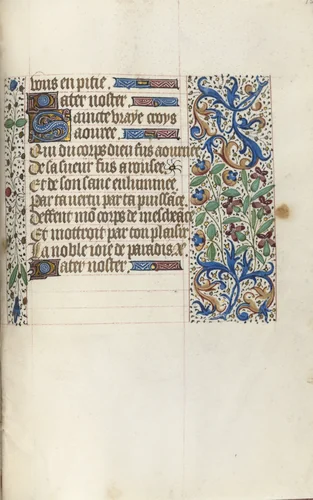 vous en pitie
Pater noster
Saincte vraye croys
aouree
Qui du corps dieu fus aournee
De la sueur fus arousee
Et de son sanc enluminee
Par ta vertu par ta puissace
Deffent mõ corps de mescheãce
Et mottroit par ton plaisir
noble ioie de paradis
Pater noster